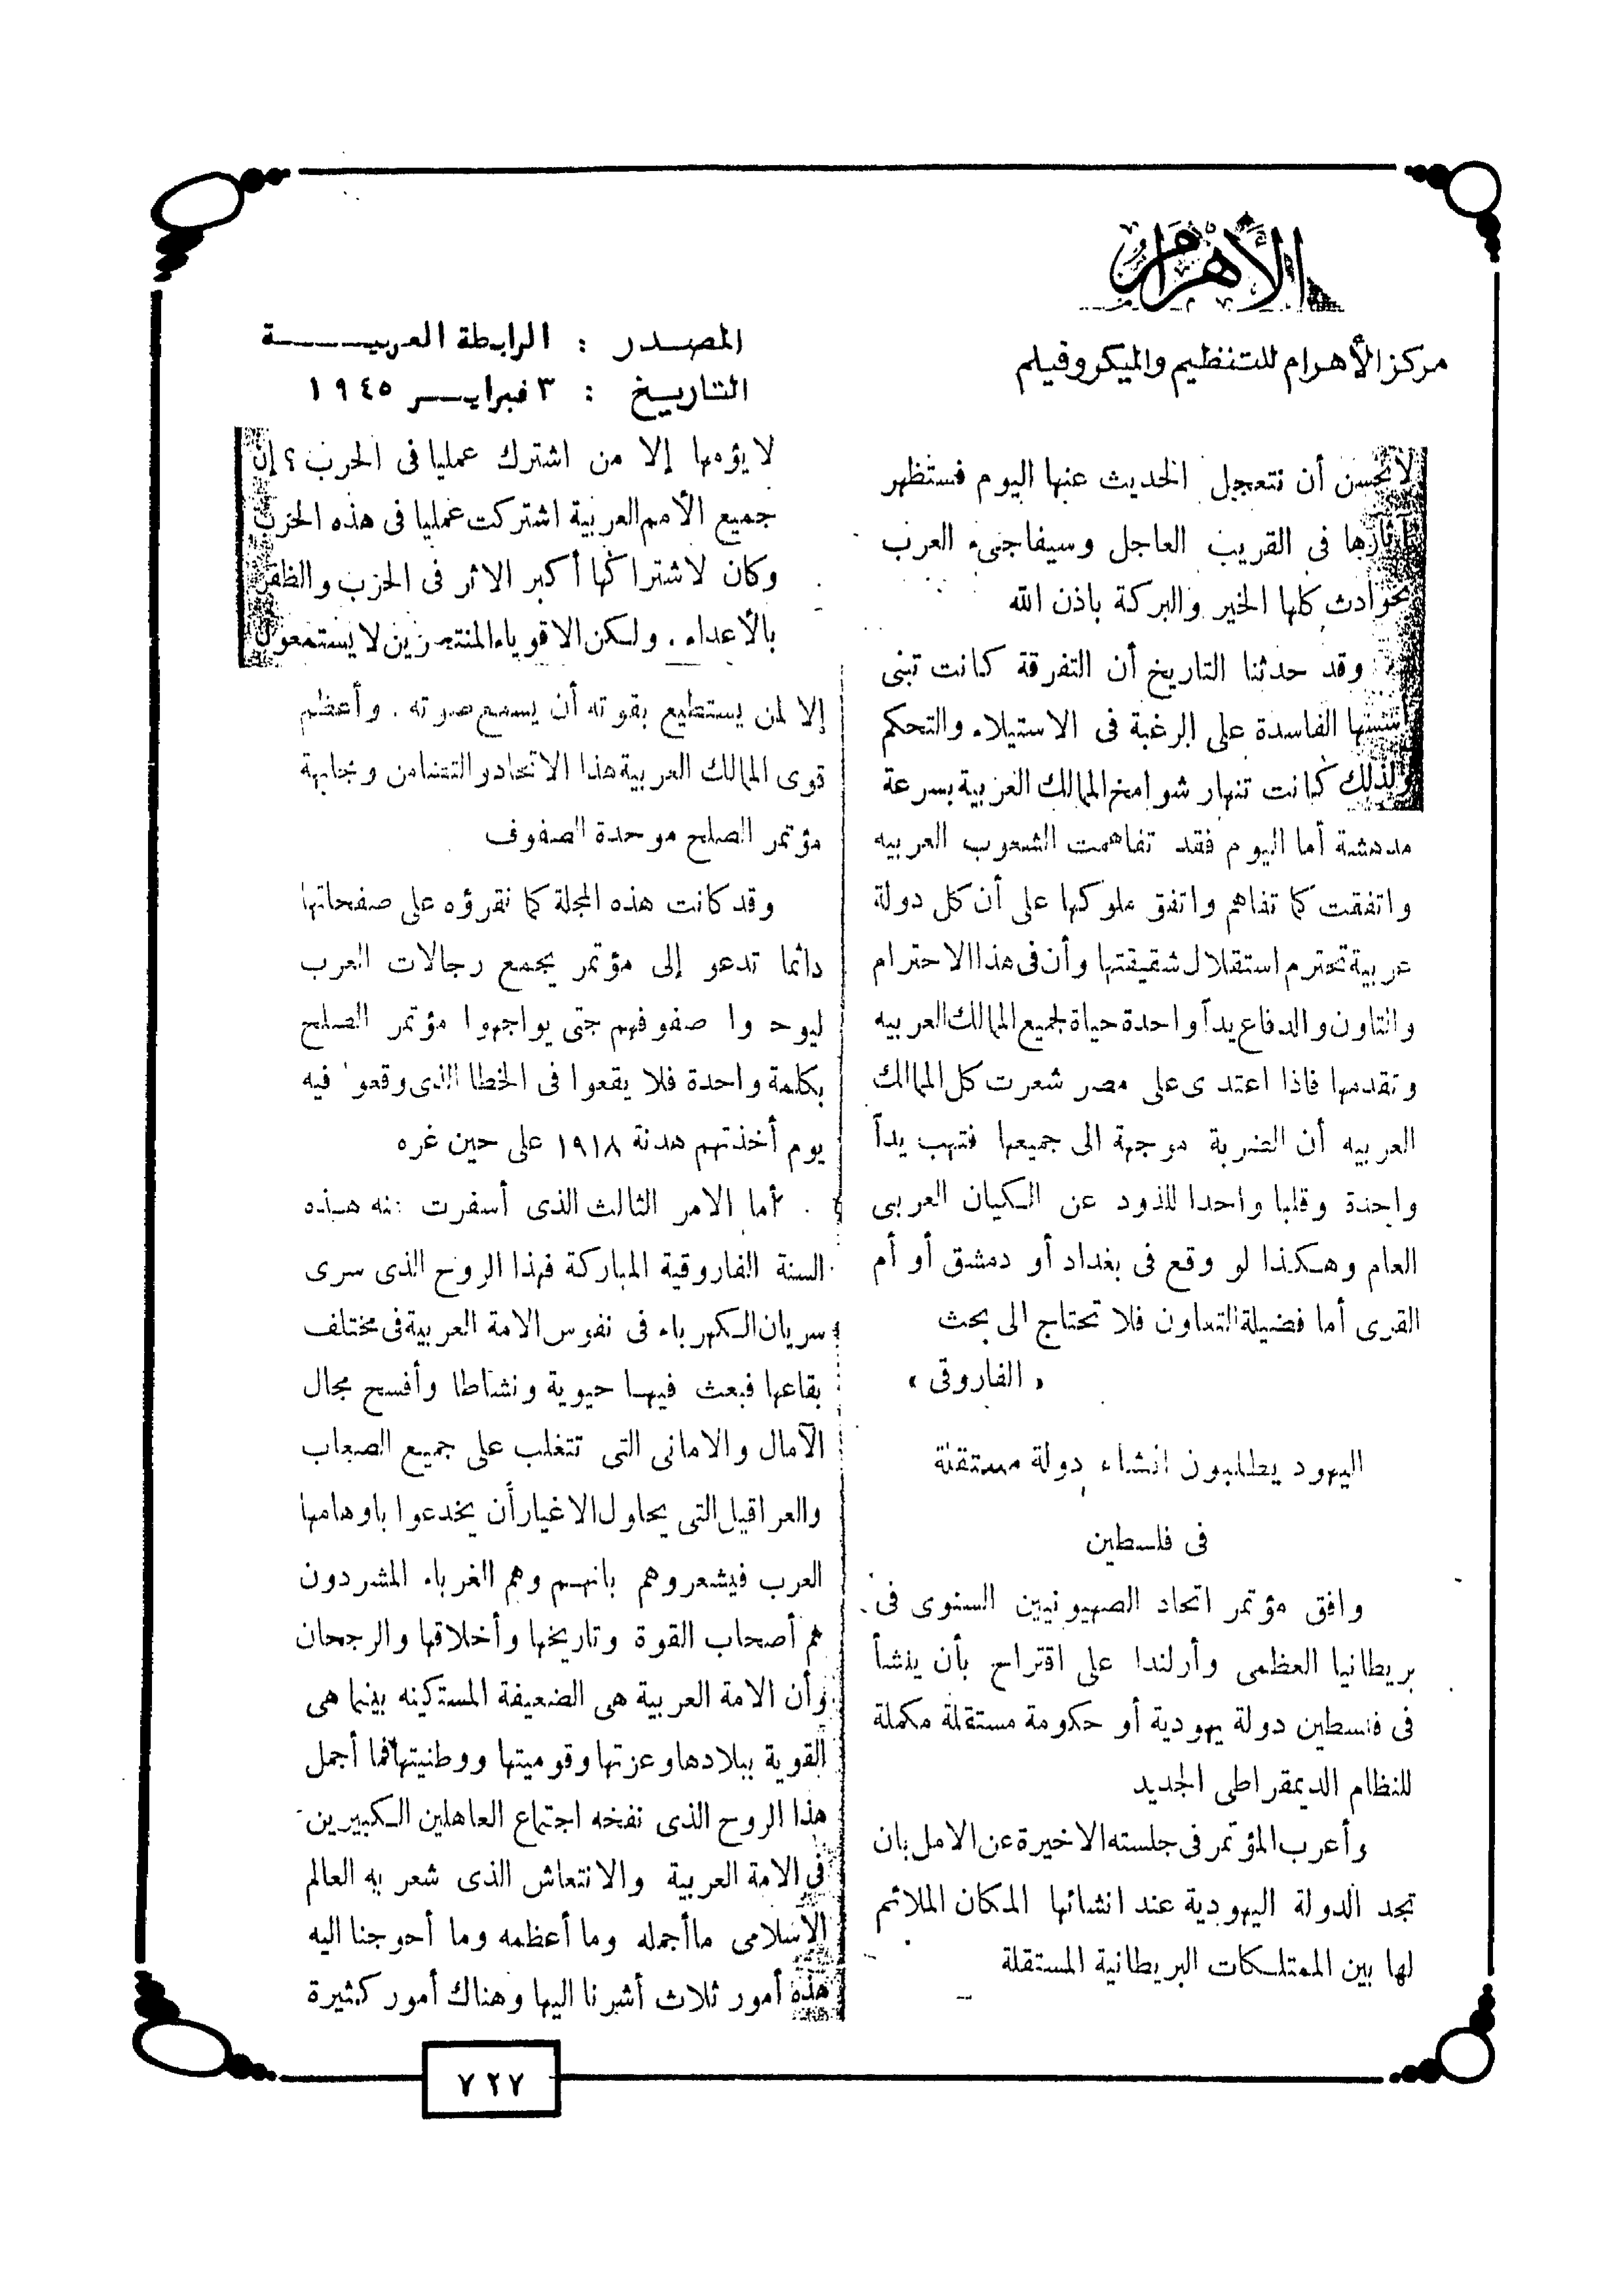 الأهرام
مركز الأهرام للتنظيم والميكروفيلم
المصدر : الرابطة العربية
التاريخ : ٣ فبراير ١٩٤٥
لا يحسن أن نتعجل الحديث عنها اليوم فستظهر
آثارها فى القريب العاجل وسيفاجىء العرب
بحوادث كلها الخير والبركة باذن الله
وقد حدثنا التاريخ أن التفرقة كانت تبنى
أسسها الفاسدة على الرغبة فى الاستيلاء والتحكم
ولذلك كانت تنهار شوامخ الممالك العربية بسرعة
مدهشة أما اليوم فقد تفاهمت الشعوب العربيه
واتفقت كما تفاهم واتفق ملوكها على أن كل دولة
عربية تحترم استقلال شقيقتها وأن فى هذا الاحترام
والتاون والدفاع يدآ واحدة حياة لجميع الممالك العربيه
وتقدمها فاذا اعتدى على مصر شعرت كل الممالك
العربيه أن الضربة موجهة الى جميعها فتهب يدآ
واحدة وقلبا واحدا للذود عن الكيان العربى
العام وهكذا لو وقع فى بغداد أو دمشق أو أم
القرى أما فضيلة التعاون فلا تحتاج الى بحث
« الفاروقى »
اليهود يطلبون انشاء دولة مستقلة
فى فلسطين
وافق مؤتمر اتحاد الصهيونيين السنوى فى
بريطانيا العظمى وأرلندا على اقتراح بأن ينشأ
فى فلسطين دولة يهودية أو حكومة مستقلة مكملة
للنظام الديمقراطى الجديد
وأعرب المؤتمر فى جلسته الاخيرة عن الامل بان
تجد الدولة اليهودية عند انشائها المكان الملائم
لها بين الممتلكات البريطانية المستقلة
لا يؤمها إلا من اشترك عمليا فى الحرب ؟ إن
جميع الأمم العربية اشتركت عمليا فى هذه الحرب
وكان لاشتراكها أكبر الاثر فى الحرب والظفر
بالأعداء . ولكن الاقوياء المنتصرين لا يستمعون
إلا لمن يستطيع بقوته أن يسمع صوته . وأعظم
قوى الممالك العربية هذا الاتحاد والتضامن ومجابهة
مؤتمر الصلح موحدة الصفوف
وقد كانت هذه المجلة كما نقرؤه على صفحاتها
دائما تدعو إلى مؤتمر يجمع رجالات العرب
ليوحدوا صفوفهم حتى يواجهوا مؤتمر الصلح
بكلمة واحدة فلا يقعوا فى الخطا الذى وقعوا فيه
يوم أخذتهم هدنة ١٩١٨ على حين غره
أما الامر الثالث الذى أسفرت عنه هذه
السنة الفاروقية المباركة فهذا الروح الذى سرى
سريان الكهرباء فى نفوس الامة العربية فى مختلف
بقاعها فبعث فيها حيوية ونشاطا وأفسح مجال
الآمال والامانى التى تتغلب على جميع الصعاب
والعراقيل التى يحاول الاغيار أن يخدعوا باوهامها
العرب فيشعروهم بانهم وهم الغرباء المشردون
هم أصحاب القوة وتاريخها وأخلاقها والرجحان
وأن الامة العربية هى الضعيفة المستكينه بينما هى
القوية ببلادها وعزتها وقوميتها ووطنيتها فما أجمل
هذا الروح الذى نفخه اجتماع العاهلين الكبيرين
فى الامة العربية والانتعاش الذى شعر به العالم
الاسلامى ما أجمله وما أعظمه وما أحوجنا اليه
هذه أمور ثلاث أشرنا اليها وهناك أمور كثيرة
٧٢٧